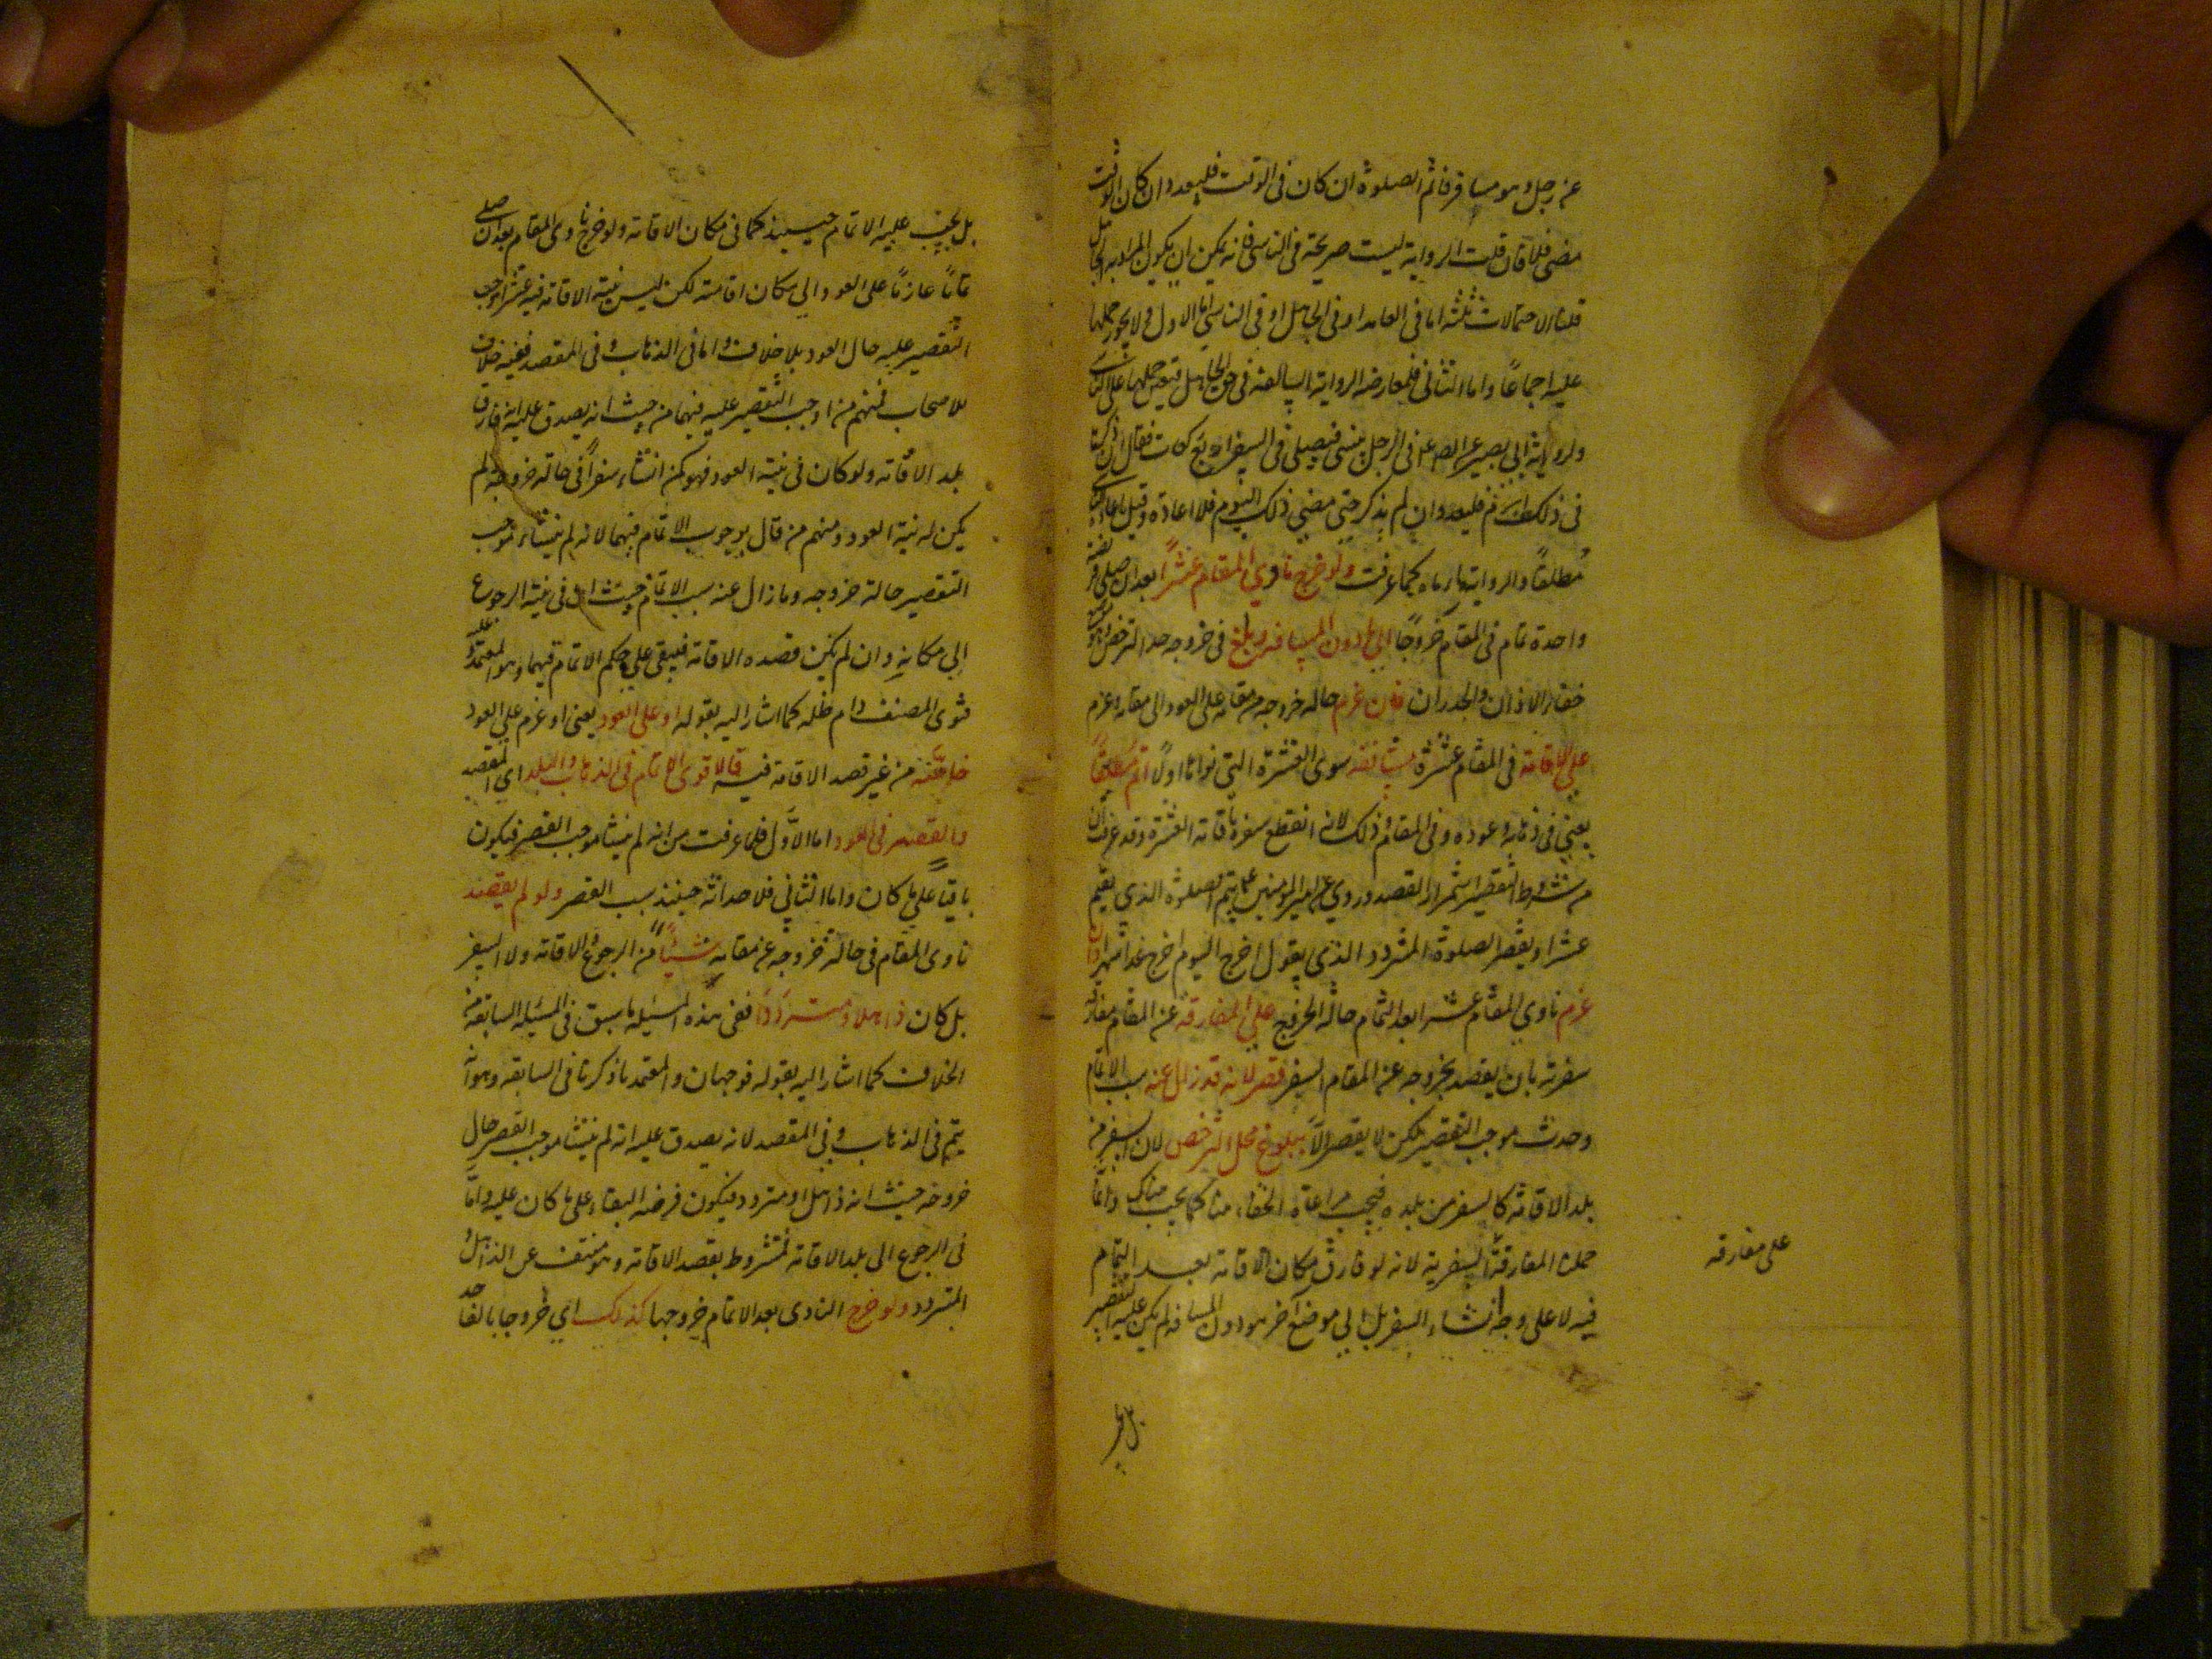 عن رجل وهو مسافر فاتم الصلوة ان كان في الوقت فليعد وان كان الوقت
مضى فلا فان قلت الرواية ليست صريحة في الناسي فانه يمكن ان يكون المراد به الجاهل
قلنا الاحتمالات ثلثة اما في العامد او في الجاهل او في الناسي اما الاول فلا يجوز حملها
عليه اجماعاً واما الثاني فلمعارضة الرواية السالفة في حق الجاهل فتعين حملها على الناسي
ولرواية ابي بصير عن الصم في الرجل ينسى فيصلي في السفر اربع ركعات فقال ان ذكر
في ذلك اليوم فليعد وان لم يذكر حتى مضى ذلك اليوم فلا اعادة وقيل باعادة
مطلقاً والرواية تدفعه كما عرفت ولو خرج ناوي المقام عشراً بعد ان صلى فريضة
واحدة تمام في المقام خروجاً الى ما دون المسافة وبلغ في خروجه حد الترخص وهو
خفاء الاذان والجدران فان عزم حالة خروجه من مقامه على العود الى مقامه وعزم
على الاقامة في المقام عشرة مستأنفة سوى العشرة التي نواها اولاً اتم مطلقاً
يعني في ذهابه وعوده وفي المقام وذلك لانه انقطع سفره باقامة العشرة وقد عرفت ان
من شروط التقصير استمرار القصد وروي عن امير المؤمنين ع يتم الصلوة الذي يقيم
عشرا ويقصر الصلوة المتردد الذي يقول اخرج اليوم اخرج غدا شهرا وان
عزم ناوي المقام عشرا بعد التمام حالة الخروج على المفارقة عن المقام مفارقة
سفرية بان يقصد بخروجه عن المقام السفر قصر لانه قد زال عنه سبب الاتمام
وحدث موجب التقصير لكن لا يقصر الا ببلوغ محل الترخص لان السفر من
بلد الاقامة كالسفر من بلده فيجب مراعاة الخفاء هنا كما يجب هناك وانما
حملنا المفارقة السفرية لانه لو فارق مكان الاقامة بعد التمام
فيه لا على وجه انشاء السفر بل الى موضع آخر هو دون المسافة لم يكن عليه التقصير
على مفارقة
بل
بل يجب عليه الاتمام حينئذ كما في مكان الاقامة ولو خرج ناوي المقام بعد ان صلى
تماماً عازماً على العود الى مكان اقامته لكن ليس بنية الاقامة فيه عشرا وجب
التقصير عليه حال العود بلا خلاف واما في الذهاب وفي المقصد ففيه خلاف
للاصحاب فمنهم من اوجب التقصير عليه فيهما من حيث انه يصدق عليه انه فارق
بلد الاقامة ولو كان في نية العود فهو كمن انشاء سفراً في حالة خروجه لم
يكن له نية العود ومنهم من قال بوجوب الاتمام فيهما لانه لم ينشاء موجب
التقصير حالة خروجه وما زال عنه سبب الاتمام حيث انه في نية الرجوع
الى مكانه وان لم يكن قصده الاقامة فليبقى على حكم الاتمام فيهما وهو المعتمد عليه
فتوى المصنف دام ظله كما اشار اليه بقوله او على العود يعني او عزم على العود
خاصة من غير قصد الاقامة فيه فالاقوى الاتمام في الذهاب والبلد اي المقصد
والقصر في العود اما الاول فلما عرفت من انه لم ينشا موجب القصر فيكون
باقياً على ما كان واما الثاني فلاحداثه حينئذ سبب القصر ولو لم يقصد
ناوي المقام في حالة خروجه عن مقامه شيئاً من الرجوع والاقامة ولا السفر
بل كان ذاهلا او مترددا ففي هذه المسئلة ما سبق في المسئلة السابقة من
الخلاف كما اشار اليه بقوله فوجهان والمعتمد ما ذكرنا في السابقة وهو انه
يتم في الذهاب وفي المقصد لانه يصدق عليه انه لم ينشا موجب القصر حال
خروجه حيث انه ذاهل او متردد فيكون فرضه البقاء على ما كان عليه واما
في الرجوع الى بلد الاقامة فمشروط بقصد الاقامة وهو منتف عن الذاهل و
المتردد ولو خرج الناوي بعد الاتمام خروجها كذلك اي خروجا بالغا حد